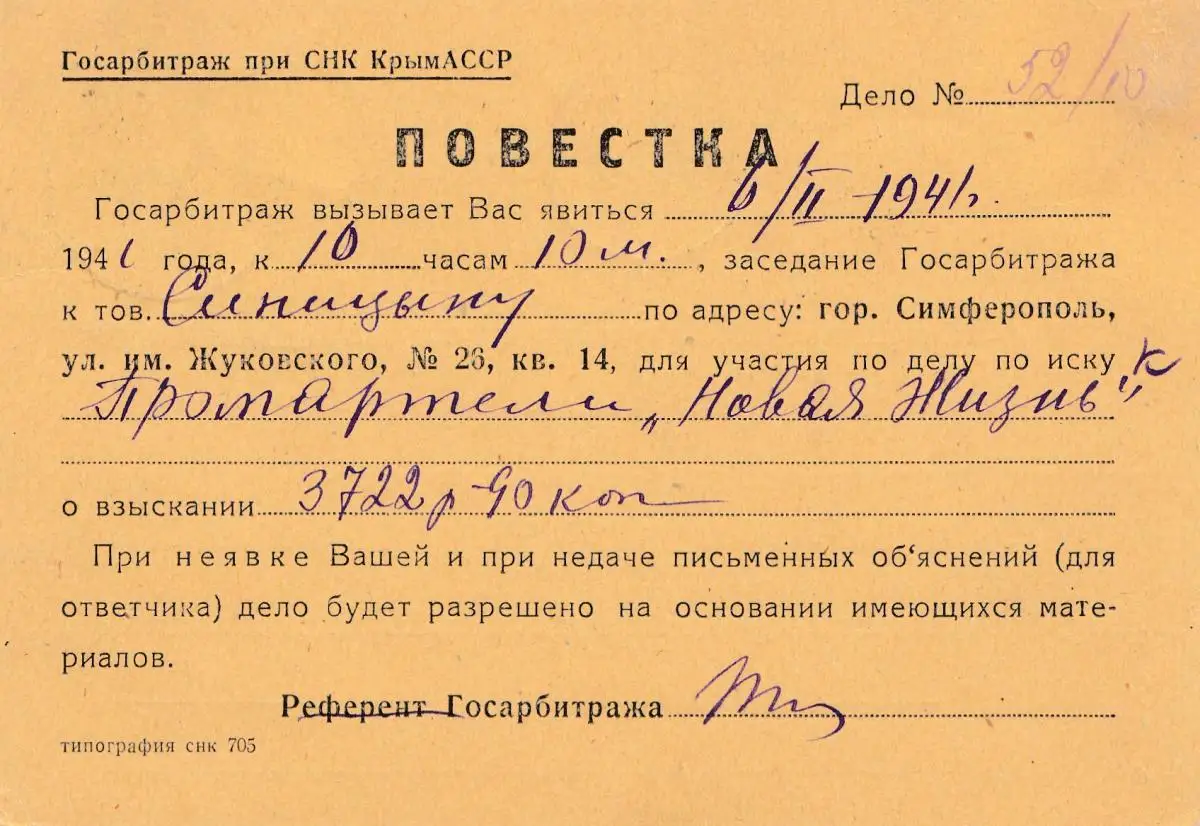 Госарбитраж при СНК КрымАССР
Дело № 52/10
ПОВЕСТКА
Госарбитраж вызывает Вас явиться 6/II-1941г.
1941 года, к 10 часам 10 м., заседание Госарбитража
к тов. Синицыну по адресу: гор. Симферополь,
ул. им. Жуковского, № 26, кв. 14, для участия по делу по иску к
Промартели „Новая Жизнь"
о взыскании 3722 р 90 коп
При неявке Вашей и при недаче письменных об'яснений (для
ответчика) дело будет разрешено на основании имеющихся мате-
риалов.
Референт Госарбитража
типография снк 705